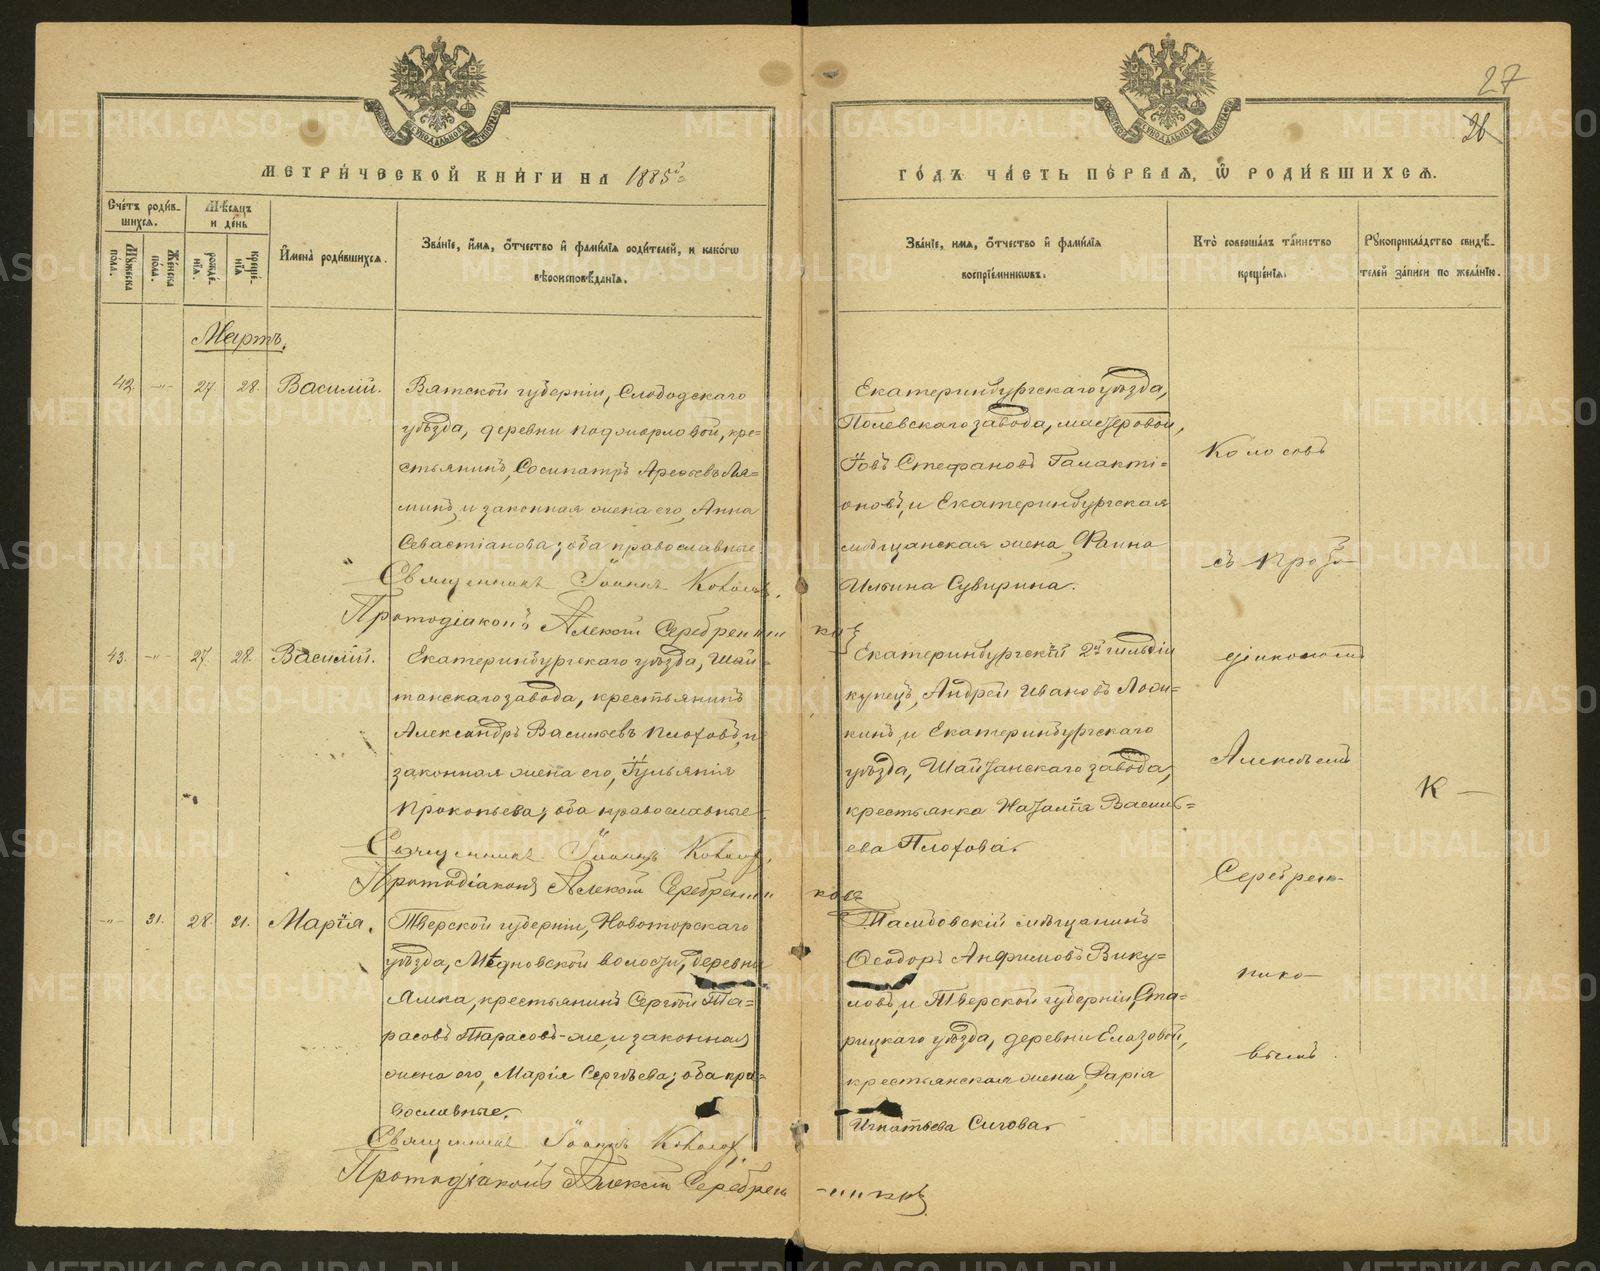 27
26
МЕТРИ́ЧЕСКОЙ КНИ́ГИ НА 1885й
ГО́ДЪ ЧА́СТЬ ПЕ́РВАЯ, Ѡ҆ РОДИ́ВШИХСЯ.
Сче́тъ роди́в-
шихся.
Мѣ́сяцъ
и де́нь
Мꙋ́жеска по́ла.
Же́нска по́ла.
рожде́-
нїя.
креще́-
нїя
И҆мена̀ роди́вшихся.
Зва́нїе, и҆́мя, ѻ҆́тчество и҆ фами́лїя роди́телей, и како́гѡ
вѣроисповѣ́данїя.
Зва́нїе, имя, ѻ҆́тчество и҆ фами́лїя
воспрїе́мникѡвъ.
Кто̀ соверша́лъ та́инство
креще́нїя.
Рꙋкоприкла́дство свидѣ́-
телей за́писи по жела́нїю.
Мартъ.
42. -"- 27 28. Василій.
Вятской губерніи, Слободскаго
уѣзда, деревни
кре-
стьянинъ, Сосипатръ Арефьевъ Ля-
минъ, и законная жена его, Анна
Севастіанова; оба православные.
Священникъ Іоаннъ Колосовъ.
Протодіаконъ Алексій Серебренниковъ
Екатеринбургскаго уѣзда,
Полевскаго завода, мастеровой,
Іовъ Стефановъ Галакті-
оновъ, и Екатеринбургская
мѣщанская жена, Фаина
Ильина Сувирина.
43. -"- 27. 28. Василій.
Екатеринбургскаго уѣзда, Шай-
танскаго завода, крестьянинъ
Александръ Васильевъ Плоховъ, и
законная жена его, Іульянія
Прокопьева; оба православные.
Священникъ Іоаннъ Колосовъ.
Протодіаконъ Алексій Серебренниковъ
Екатеринбургскій 2й гильдіи
купецъ, Андрей Ивановъ Лоси-
кинъ, и Екатеринбургскаго
уѣзда, Шайтанскаго завода,
крестьянка Наталія Василь-
ева Плохова.
-"- 31. 28. 31. Марія.
Тверской губерніи, Новоторскаго
уѣзда, Мѣдновской волости, деревни
Ямка, крестьянинъ Сергій Та-
расовъ Тарасовъ-же, и законная
жена его, Марія Сергѣева; оба пра-
вославные.
Священникъ Іоаннъ Колосовъ.
Протодіаконъ Алексій Серебренниковъ
Тамбовскій мѣщанинъ
Ѳеодоръ Анфимовъ Вику-
ловъ, и Тверской губерніи, Ста-
рицкаго уѣзда, деревни Елазовой,
крестьянская жена, Дарія
Игнатьева Сигова.
Колосовъ
съ Прото-
діакономъ
Алексѣемъ
Серебрен-
нико-
вымъ.
К —
METRIKI.GASO-URAL.RU